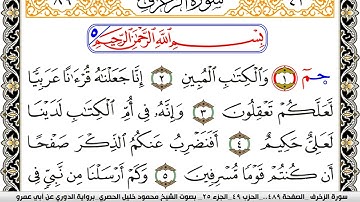 ٨٩ سورة الزخرف ٤٣
بِسْمِ اللَّهِ الرَّحْمَٰنِ الرَّحِيمِ
حمٓ ١ وَالْكِتَابِ الْمُبِينِ ٢ إِنَّا جَعَلْنَاهُ قُرْءَانًا عَرَبِيًّا
لَّعَلَّكُمْ تَعْقِلُونَ ٣ وَإِنَّهُ فِي أُمِّ الْكِتَابِ لَدَيْنَا
لَعَلِيٌّ حَكِيمٌ ٤ أَفَنَضْرِبُ عَنكُمُ الذِّكْرَ صَفْحًا
أَن كُنتُمْ قَوْمًا مُّسْرِفِينَ ٥ وَكَمْ أَرْسَلْنَا مِن نَّبِيٍّ فِي
سورة الزخرف _ الصفحة ٤٨٩ _ الحزب ٤٩ _ الجزء ٢٥ _ بصوت الشيخ محمود خليل الحصري _ برواية الدوري عن أبي عمرو